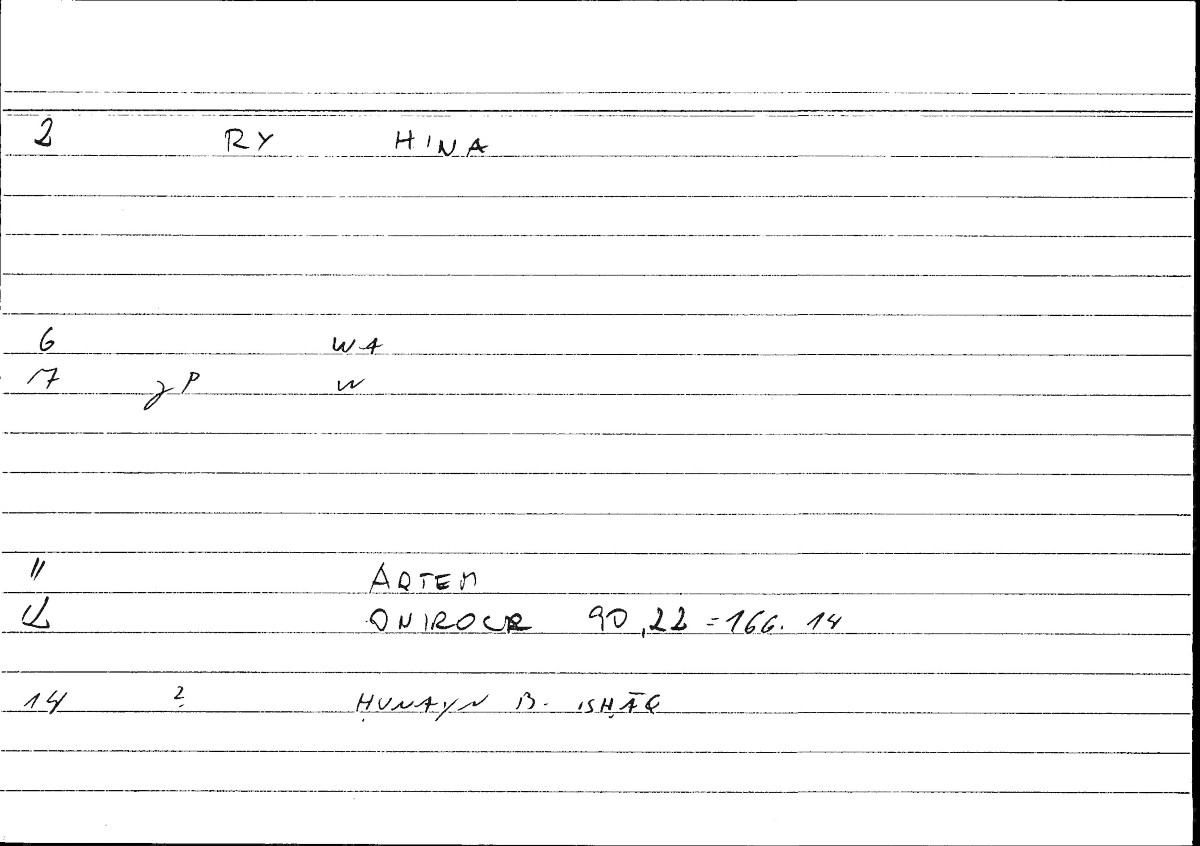 2 RY HINA
6 WA
7 gP W
11 ARTEM
12 ONIROCR 90,22 = 166. 14
14 ? ḤUNAYN B. ISḤĀQ